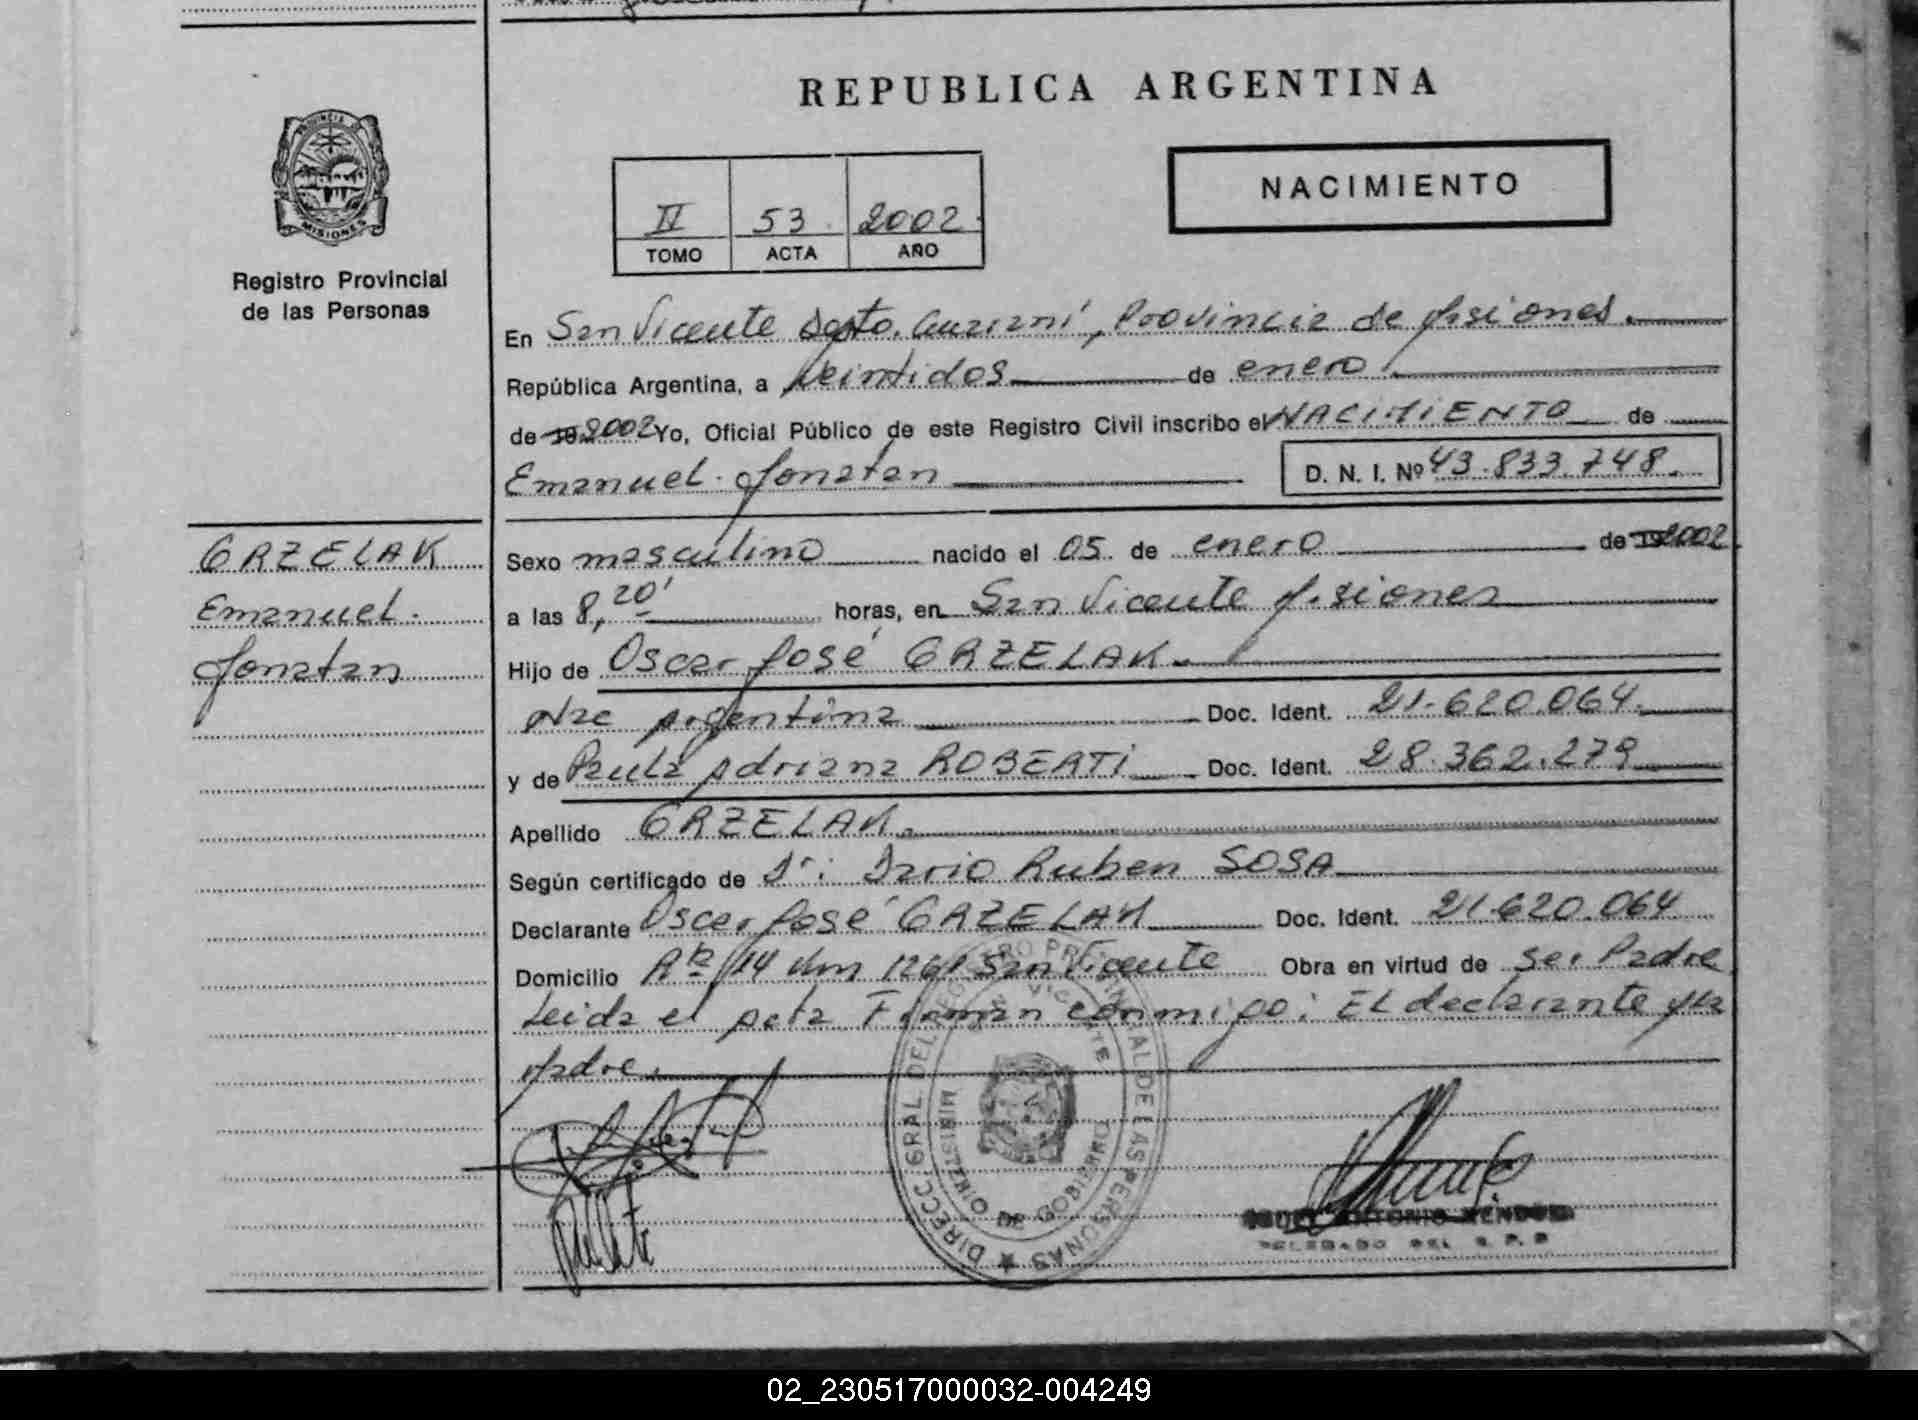 REPUBLICA ARGENTINA
PROVINCIA DE
MISIONES
Registro Provincial
de las Personas
NACIMIENTO
II 53 2002
TOMO ACTA AÑO
En San Vicente Dpto. Guaraní, Provincia de Misiones.
República Argentina, a veintidos de enero
de 19 2002 Yo, Oficial Público de este Registro Civil inscribo el NACIMIENTO de
Emanuel Jonatan D. N. I. Nº 43.833.748.
GRZELAK
Emanuel
Jonatan
Sexo masculino nacido el 05 de enero de 19 2002
a las 8,20' horas, en San Vicente Misiones
Hijo de Oscar José GRZELAK
Nac Argentina Doc. Ident. 21.620.064
y de Paula Adriana ROBERTI Doc. Ident. 28.362.279
Apellido GRZELAK.
Según certificado de Dr: Dario Ruben SOSA
Declarante Oscar José GRZELAK Doc. Ident. 21.620.064
Domicilio Rta 14 Km 1261 San Vicente Obra en virtud de ser Padre
Leida el Acta Firman conmigo: El declarante y la
Madre.
DIRECC GRAL. DEL REGISTRO PROVINCIAL DE LAS PERSONAS
MINISTERIO DE GOBIERNO
SAN VICENTE
ANTONIO
DELEGADO DEL R. P. P
02_230517000032-004249